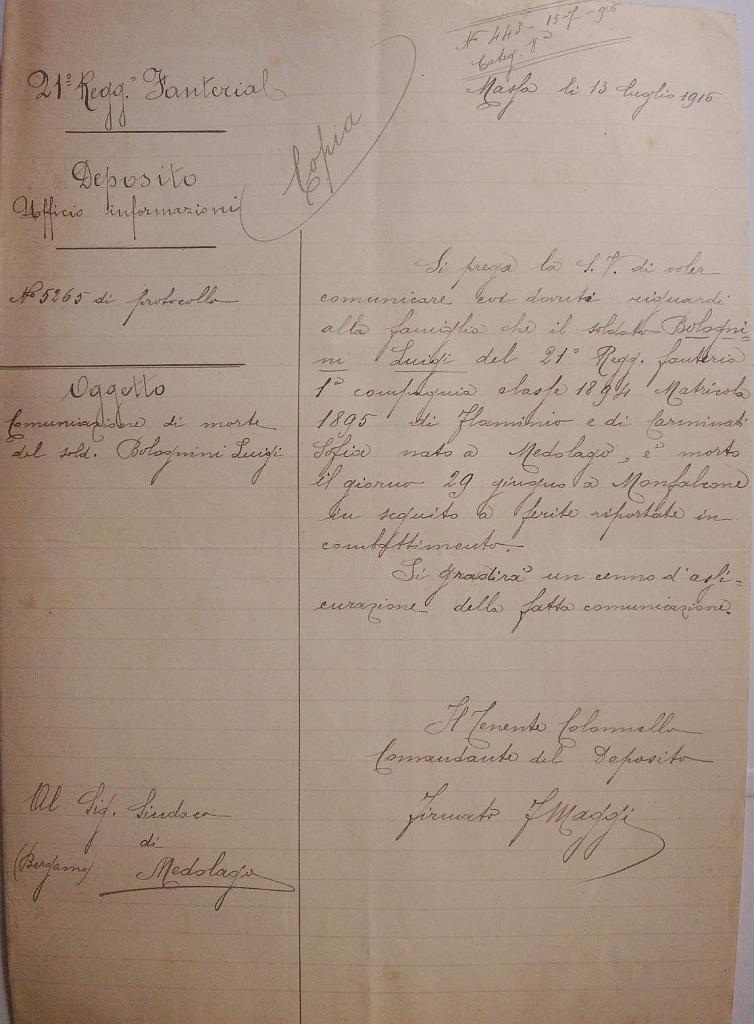 N° 448 - 15-7-916
Categ. 8ª
21° Regg.° Fanteria
Massa li 13 luglio 1916
Copia
Deposito
Ufficio informazioni
N° 5265 di protocollo
Oggetto
Comunicazione di morte
del sold. Bolognini Luigi
Si prega la S. V. di voler
comunicare coi dovuti riguardi
alla famiglia che il soldato Bologni=
ni Luigi del 21° Regg. fanteria
1ª compagnia classe 1894 Matricola
1895 di Flaminio e di Carminati
Sofia nato a Medolago, è morto
il giorno 29 giugno a Monfalcone
in seguito a ferite riportate in
combattimento.
Si gradirà un cenno d'assi=
curazione della fatta comunicazione.
Il Tenente Colonnello
Comandante del Deposito
Firmato F Maggi
Al Sig. Sindaco
di
(Bergamo) Medolago